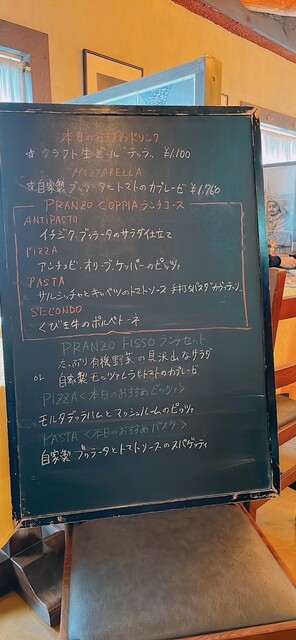 本日のおすすめドリンク
☆ クラフト生ビール "テラ" ¥1.100
MOZZARELLA
☆自家製 ブッラータとトマトのカプレーゼ ¥1,760
PRANZO COPPIA ランチコース
ANTIPASTO
イチジク、ブッラータのサラダ仕立て
PIZZA
アンチョビ・オリーブ、ケッパーのピッツァ
PASTA
サルシッチャとキャベツのトマトソース 手打ちパスタ
SECONDO
くびき牛のポルペトーネ
PRANZO FISSO ランチセット
たっぷり有機野菜の具沢山サラダ
or 自家製モッツァレラとトマトのカプレーゼ
PIZZA <本日のおすすめピッツァ>
モルタデッラハムとマッシュルームのピッツァ
PASTA <本日のおすすめパスタ>
自家製 ブッラータとトマトソースのスパゲッティ